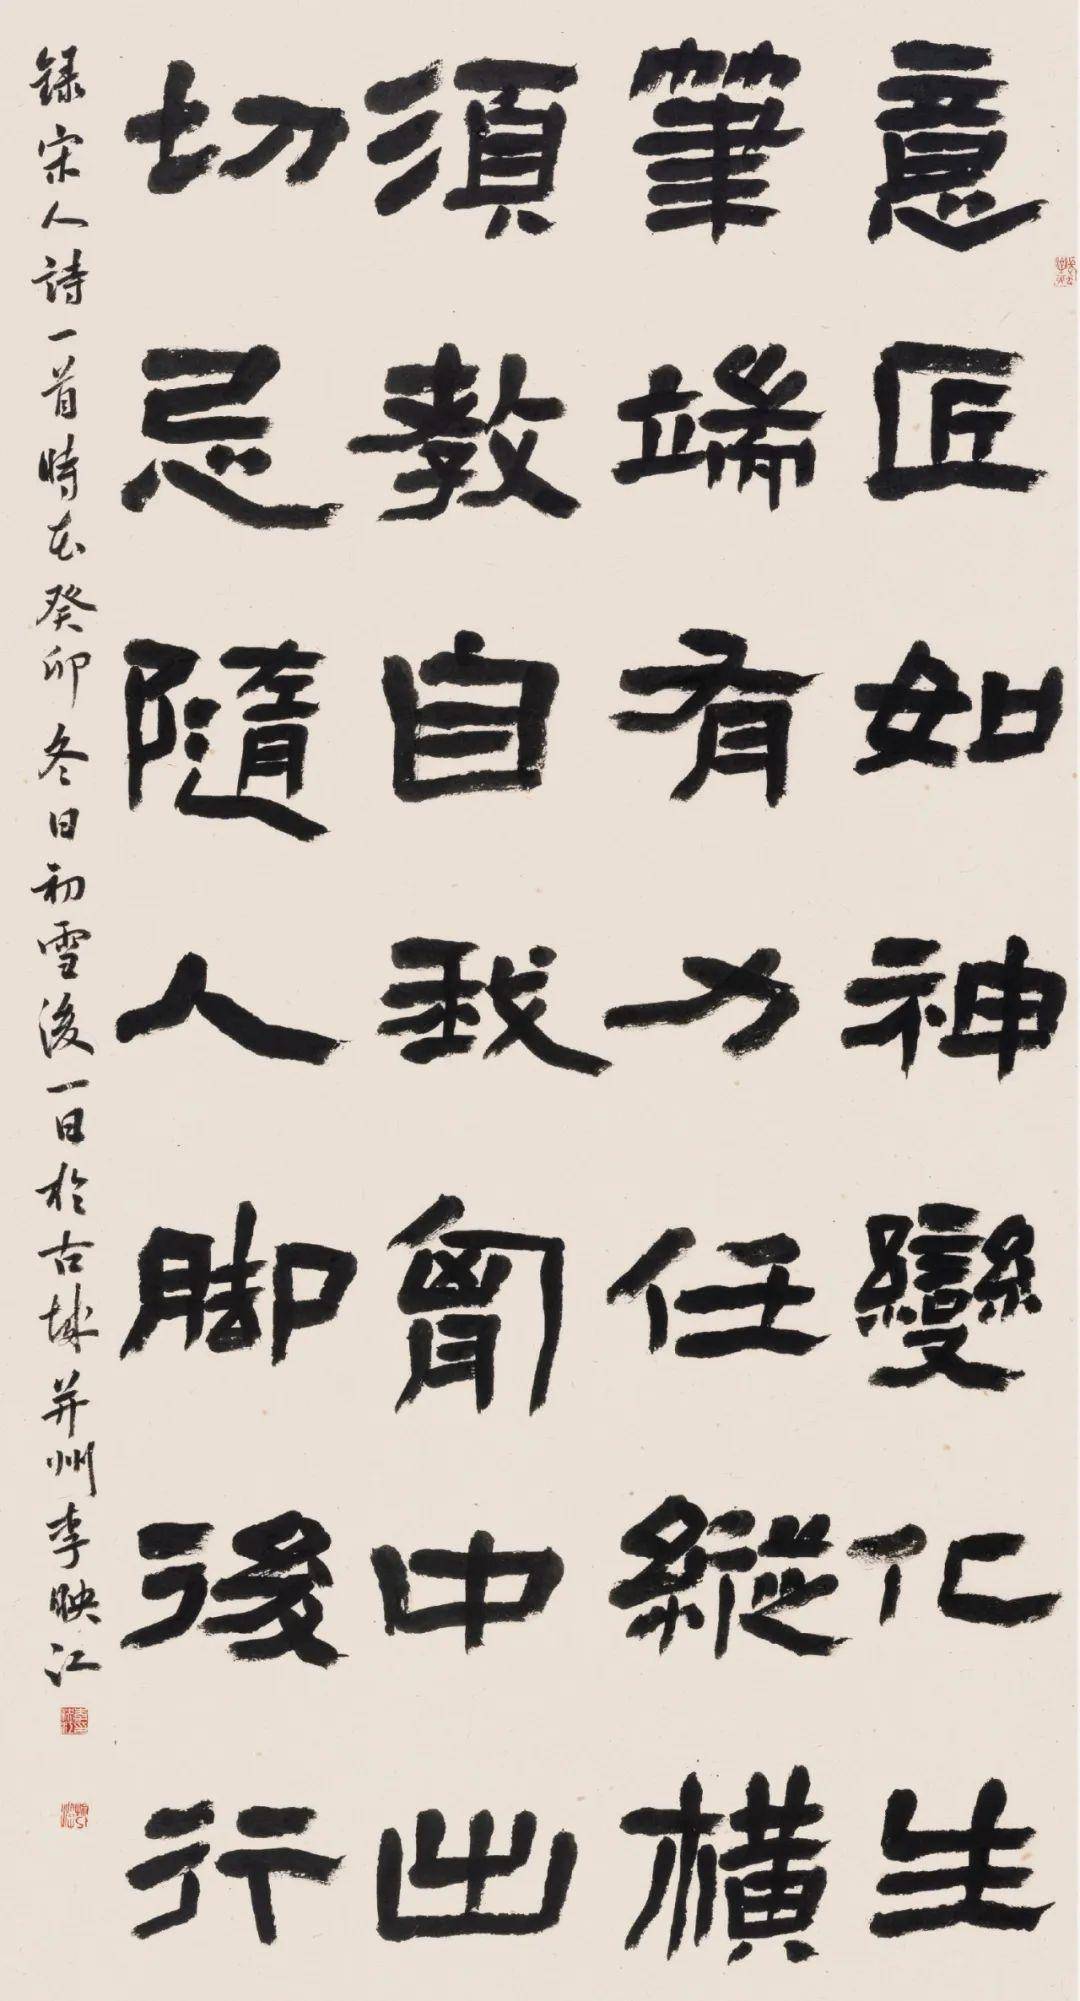 意匠如神變化生
筆端有力任縱橫
須教自我胷中出
切忌隨人脚後行
録宋人詩一首時在癸卯冬日初雪後一日於古城并州李映江